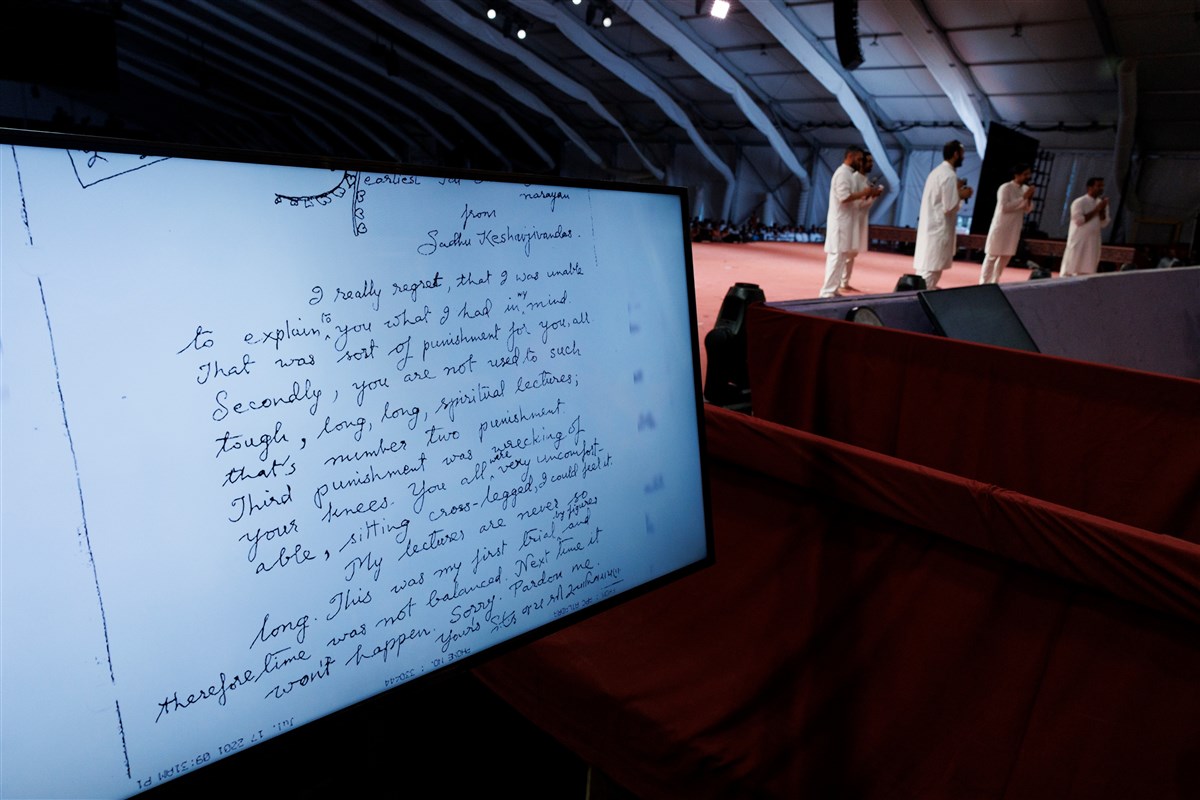 earliest
narayan
from
Sadhu Keshavjivandas.
I really regret, that I was unable
to explain to you what I had in my mind.
That was sort of punishment for you, all
Secondly, you are not used to such
tough, long, long, spiritual lectures;
that's number two punishment
Third punishment was wrecking of
your knees. You all were very uncomfort-
able, sitting cross-legged, I could feel it.
My lectures are never so
long. This was my first trial, by figures and
therefore time was not balanced. Next time it
won't happen. Sorry. Pardon me.
yours
PHONE NO. : 330444
Jul. 17 2201 09:31AM P1